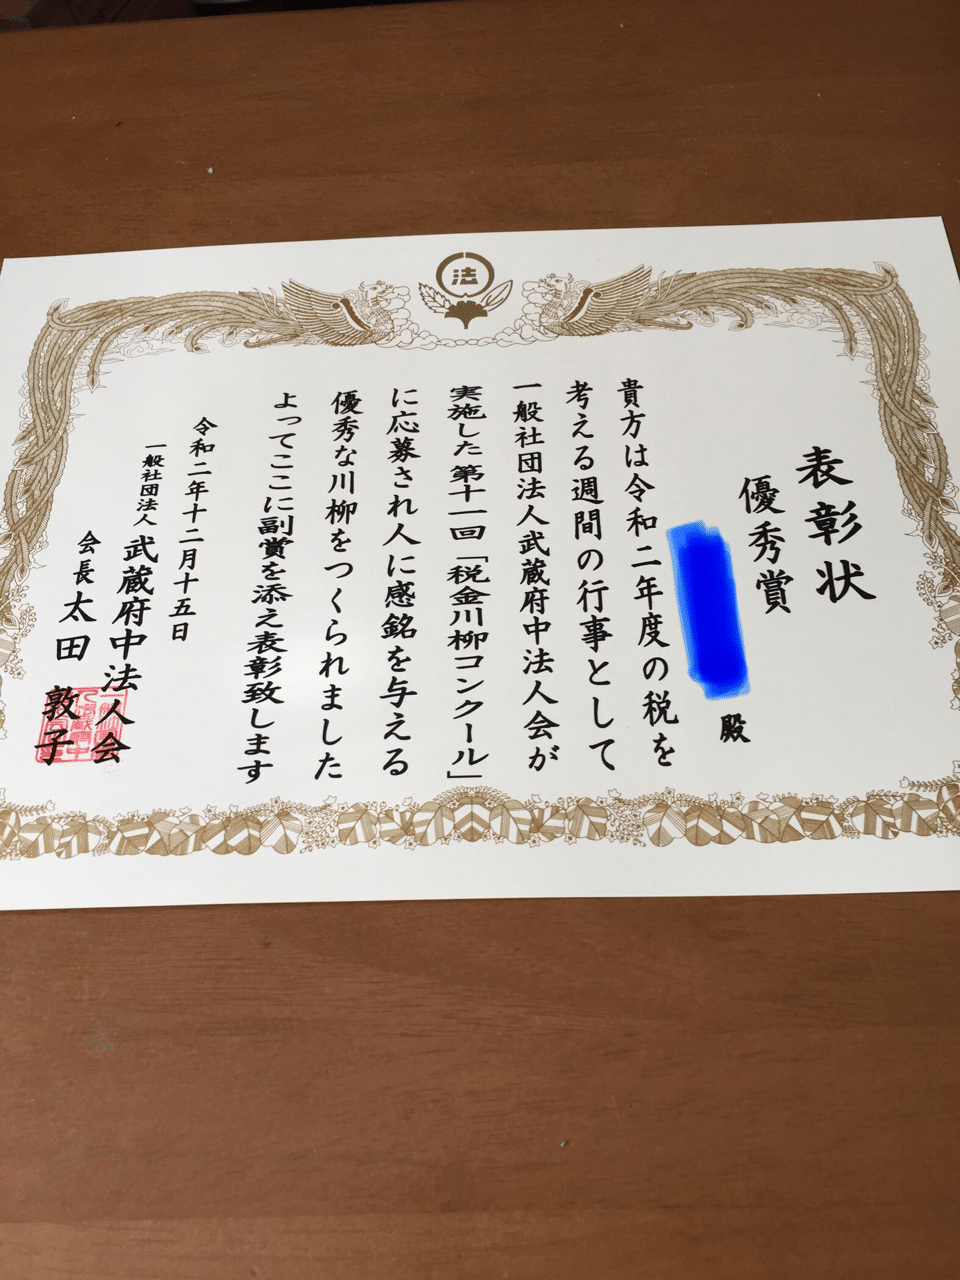 法
表彰状
優秀賞
殿
貴方は令和二年度の税を
考える週間の行事として
一般社団法人武蔵府中法人会が
実施した第十一回「税金川柳コンクール」
に応募され人に感銘を与える
優秀な川柳をつくられました
よってここに副賞を添え表彰致します
令和二年十二月十五日
一般社団法人 武蔵府中法人会
会長 太田 敦子